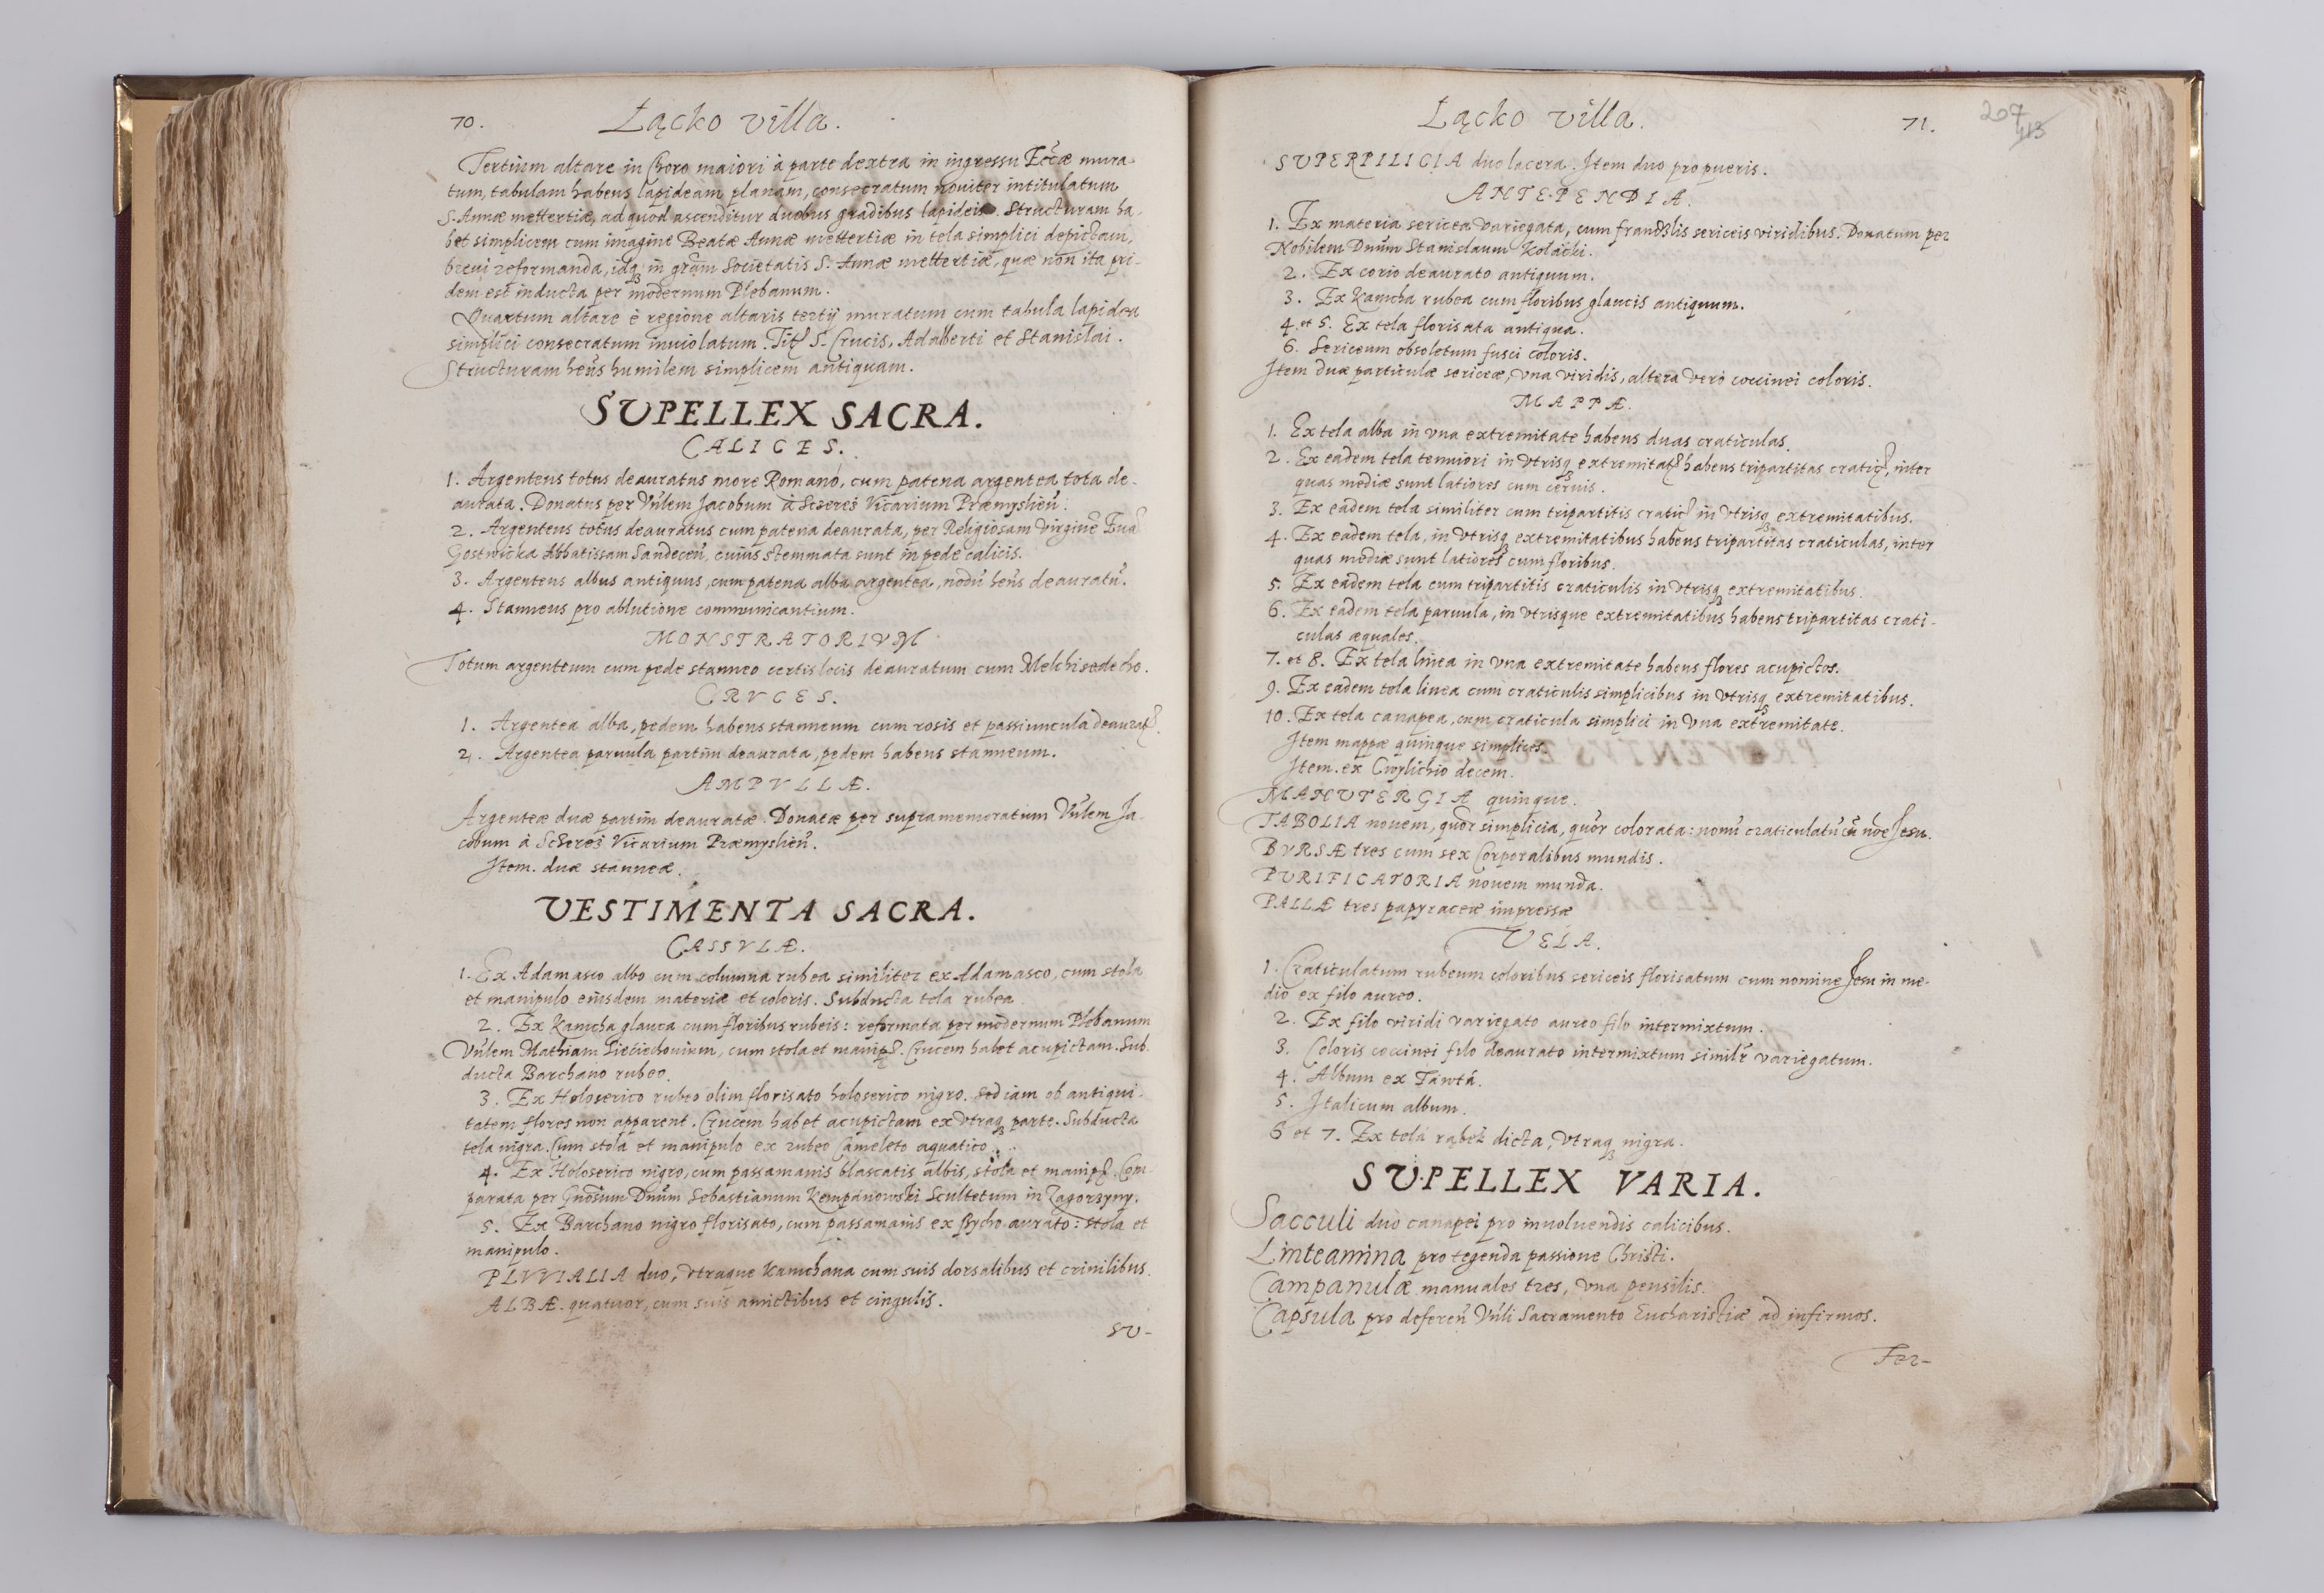 70.
Łącko villa.
Tertium altare in Choro maiori à parte dextra in ingressu Eccæ mura-
tum, tabulam habens lapideam planam, consecratum noviter intitulatum
S. Annæ mettertiæ, ad quod ascenditur duobus gradibus lapideis. Structuram ha-
bet simplicem cum imagine Beatæ Annæ mettertiæ in tela simplici depictam,
brevi reformanda, idq in gram Societatis S. Annæ mettertiæ, quæ non ita pri-
dem est inducta per modernum Plebanum.
Quartum altare è regione altaris tertij muratum cum tabula lapidea
simplici consecratum inviolatum. Tit. S. Crucis, Adalberti et Stanislai.
Structuram hens humilem simplicem antiquam.
SVPELLEX SACRA.
CALICES.
1. Argenteus totus deauratus more Romano, cum patena argentea tota de-
aurata. Donatus per Vnlem Jacobum à Sczerez Vicarium Præmyslien:
2. Argenteus totus deauratus cum patena deaurata, per Religiosam virginē Euā
Gostwicka Abbatissam Sandecen, cuius stemmata sunt in pede calicis.
3. Argenteus albus antiquus, cum patena alba argentea, nodū hens deauratū.
4. Stanneus pro ablutione communicantium.
MONSTRATORIVM
Totum argenteum cum pede stanneo certis locis deauratum cum Melchisedecho.
CRVCES.
1. Argentea alba, pedem habens stanneum cum rosis et passiuncula deaurat.
2. Argentea paruula partim deaurata, pedem habens stanneum.
AMPVLLÆ.
Argenteæ duæ partim deauratæ. Donatæ per supramemoratum Vnlem Ja-
cobum à Sczerez Vicarium Præmyslien.
Item. duæ stanneæ.
VESTIMENTA SACRA.
CASSVLÆ.
1. Ex Adamasco albo cum columna rubea similiter ex Adamasco, cum stola
et manipulo eiusdem materiæ et coloris. Subducta tela rubea
2. Ex Kamcha glauca cum floribus rubeis: reformata per modernum Plebanum
Vnlem Mathiam, cum stola et manip. Crucem habet acupictam. Sub-
ducta Barchano rubeo.
3. Ex Holoserico rubeo olim florisato holoserico nigro. Sed iam ob antiqui-
tatem flores non apparent. Crucem habet acupictam ex vtraq parte. Subducta
tela nigra. Cum stola et manipulo ex rubeo Cameleto aquatico.
4. Ex Holoserico nigro, cum passamanis blascatis albis, stola et manip. Com-
parata per Gnosum Dnum Sebastianum Kempanowski Scultetum in Zagorzyny.
5. Ex Barchano nigro florisato, cum passamanis ex psycho aurato: stola et
manipulo.
PLVVIALIA duo, vtraque Kamchana cum suis dorsalibus et crinilibus.
ALBÆ. quatuor, cum suis amictibus et cingulis.
SV-
Łącko villa.
71.
207
SVPERPILICIA duo lacera. Item duo pro pueris.
ANTEPENDIA.
1. Ex materia sericea variegata, cum frandzlis sericeis viridibus. Donatum per
Nobilem Dnum Stanislaum Kołacki.
2. Ex corio deaurato antiquum.
3. Ex Kamcha rubea cum floribus glaucis antiquum.
4. et 5. Ex tela florisata antiqua.
6. Sericeum obsoletum fusci coloris.
Item duæ particulæ sericeæ, vna viridis, altera vero coccinei coloris.
MAPPÆ.
1. Ex tela alba in vna extremitate habens duas craticulas.
2. Ex eadem tela tenuiori in vtrisq extremitat. habens tripartitas cratic., inter
quas mediæ sunt latiores cum cervis.
3. Ex eadem tela similiter cum tripartitis cratic. in vtrisq extremitatibus.
4. Ex eadem tela, in vtrisq extremitatibus habens tripartitas craticulas, inter
quas mediæ sunt latiores cum floribus.
5. Ex eadem tela cum tripartitis craticulis in vtrisq extremitatibus.
6. Ex eadem tela paruula, in vtrisque extremitatibus habens tripartitas crati-
culas æquales.
7. et 8. Ex tela linea in vna extremitate habens flores acupictos.
9. Ex eadem tela linea cum craticulis simplicibus in vtrisq extremitatibus.
10. Ex tela canapea, cum craticula simplici in vna extremitate.
Item mappæ quinque simplices.
Item. ex Cwylichio decem.
MANVTERGIA quinque.
TABOLIA nouem, quor simplicia, quor colorata: nonū craticulatū cū noe Jesu.
BVRSÆ tres cum sex Corporalibus mundis.
PVRIFICATORIA nouem munda.
PALLÆ tres papyraceæ impressæ
VELA.
1. Craticulatum rubeum coloribus sericeis florisatum cum nomine Jesu in me-
dio ex filo aureo.
2. Ex filo viridi variegato aureo filo intermixtum.
3. Coloris coccinei filo deaurato intermixtum similr variegatum.
4. Album ex Tawtá.
5. Italicum album.
6 et 7. Ex tela rąbek dicta, vtraq nigra.
SVPELLEX VARIA.
Sacculi duo canapei pro inuoluendis calicibus.
Linteamina pro tegenda passione Christi.
Campanulæ manuales tres, vna pensilis.
Capsula pro deferen Vnli Sacramento Eucharistiæ ad infirmos.
Fer-